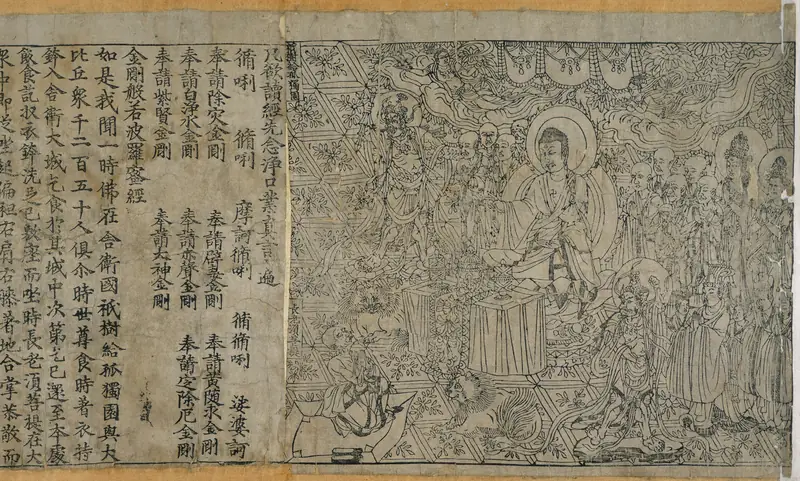 祇樹給孤獨園
凡欲讀經先念淨口業真言一遍
脩唎 脩唎 摩訶脩唎 脩脩唎 娑婆訶
奉請除灾金剛 奉請辟毒金剛 奉請黃隨求金剛
奉請白淨水金剛 奉請赤聲金剛 奉請定除厄金剛
奉請紫賢金剛 奉請大神金剛
金剛般若波羅蜜經
如是我聞一時佛在舍衛國祇樹給孤獨園與大
比丘衆千二百五十人俱尒時世尊食時著衣持
鉢入舍衛大城乞食於其城中次第乞已還至本處
飯食訖収衣鉢洗足已敷座而坐時長老須菩提在大
衆中即從坐起偏袒右肩右膝著地合掌恭敬而